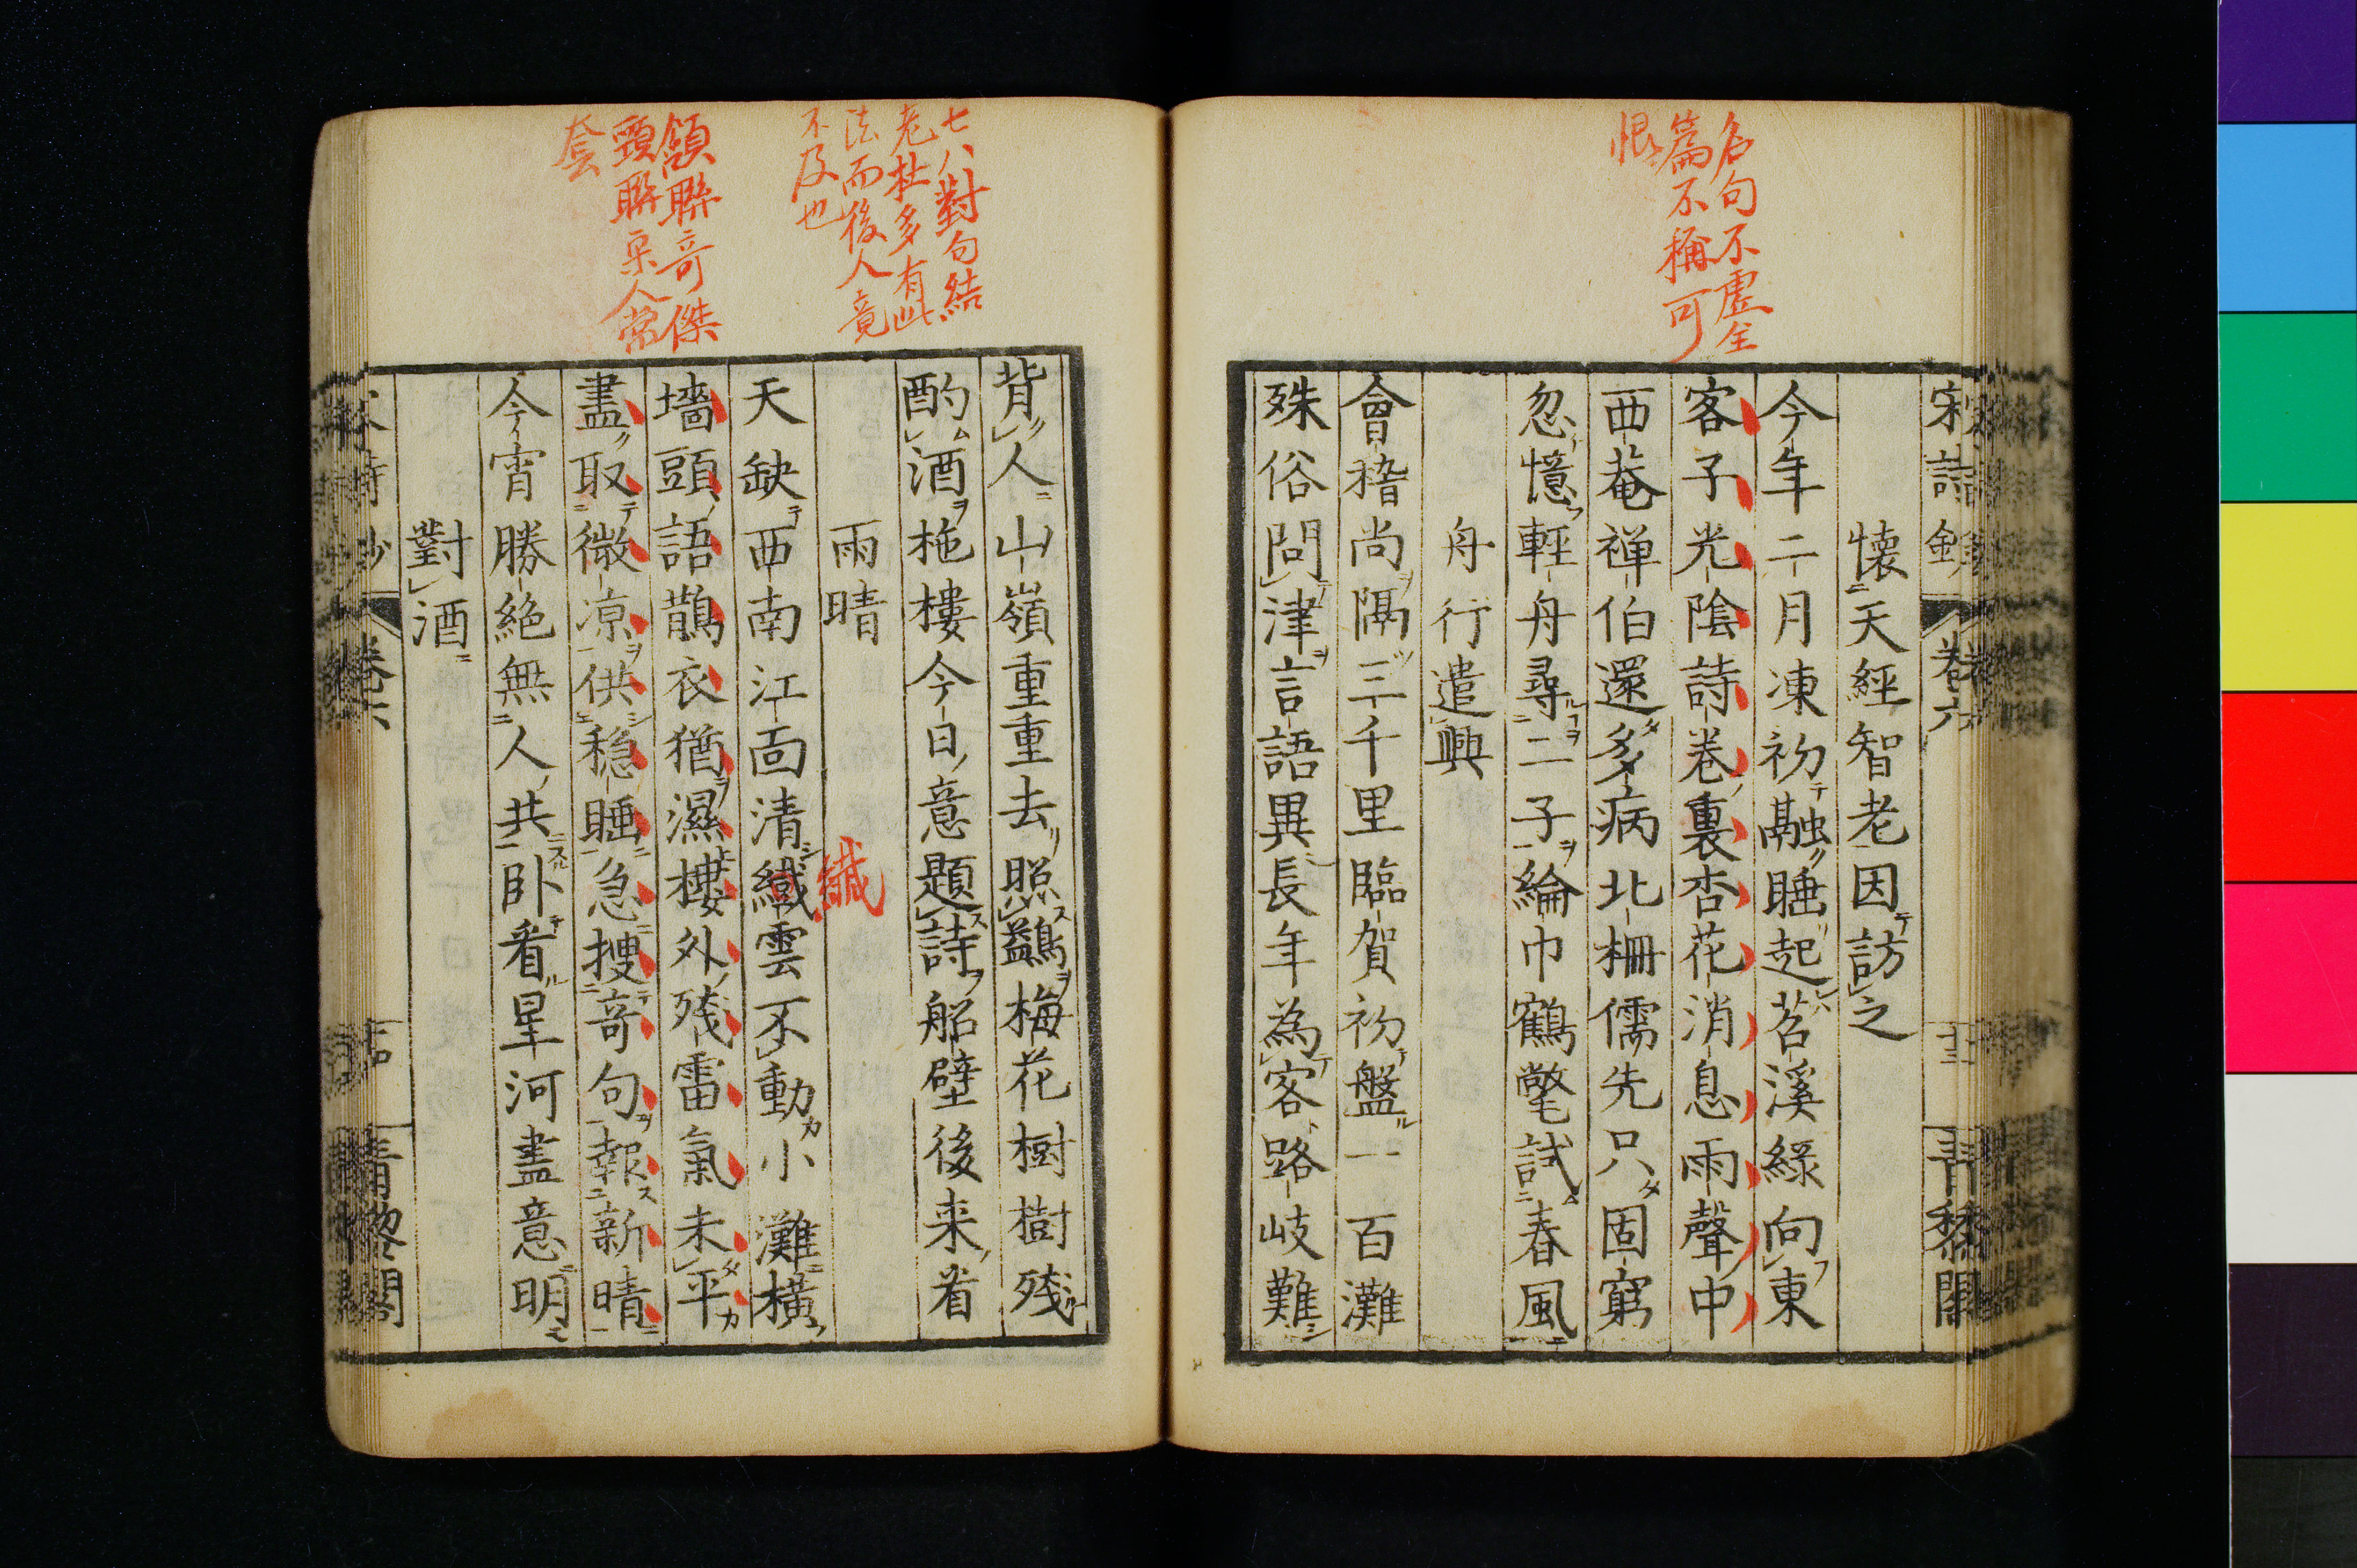 名句不虚全
篇不稱可
恨
宋詩鈔 卷六 青藜閣
懐天經智老因訪之
今年二月凍初融睡起苕溪緑向東
客子光陰詩巻裏杏花消息雨聲中
西菴禅伯還多病北柵儒先只固窮
忽憶輕舟尋二子綸巾鶴氅試春風
舟行遣興
會稽尚隔三千里臨賀初盤一百灘
殊俗問津言語異長年為客路岐難
七八對句結
老杜多有此
法而後人竟
不及也
頷聯奇傑
頸聯宋人常
套
背人山嶺重重去照鷁梅花樹樹殘
酌酒柂樓今日意題詩船壁後来看
雨晴
天缺西南江面清纎雲不動小灘横
纖
墻頭語鵲衣猶濕樓外殘雷氣未平
盡取微凉供穏睡急捜奇句報新晴
今宵勝絶無人共卧看星河盡意明
對酒
卷六 青藜閣